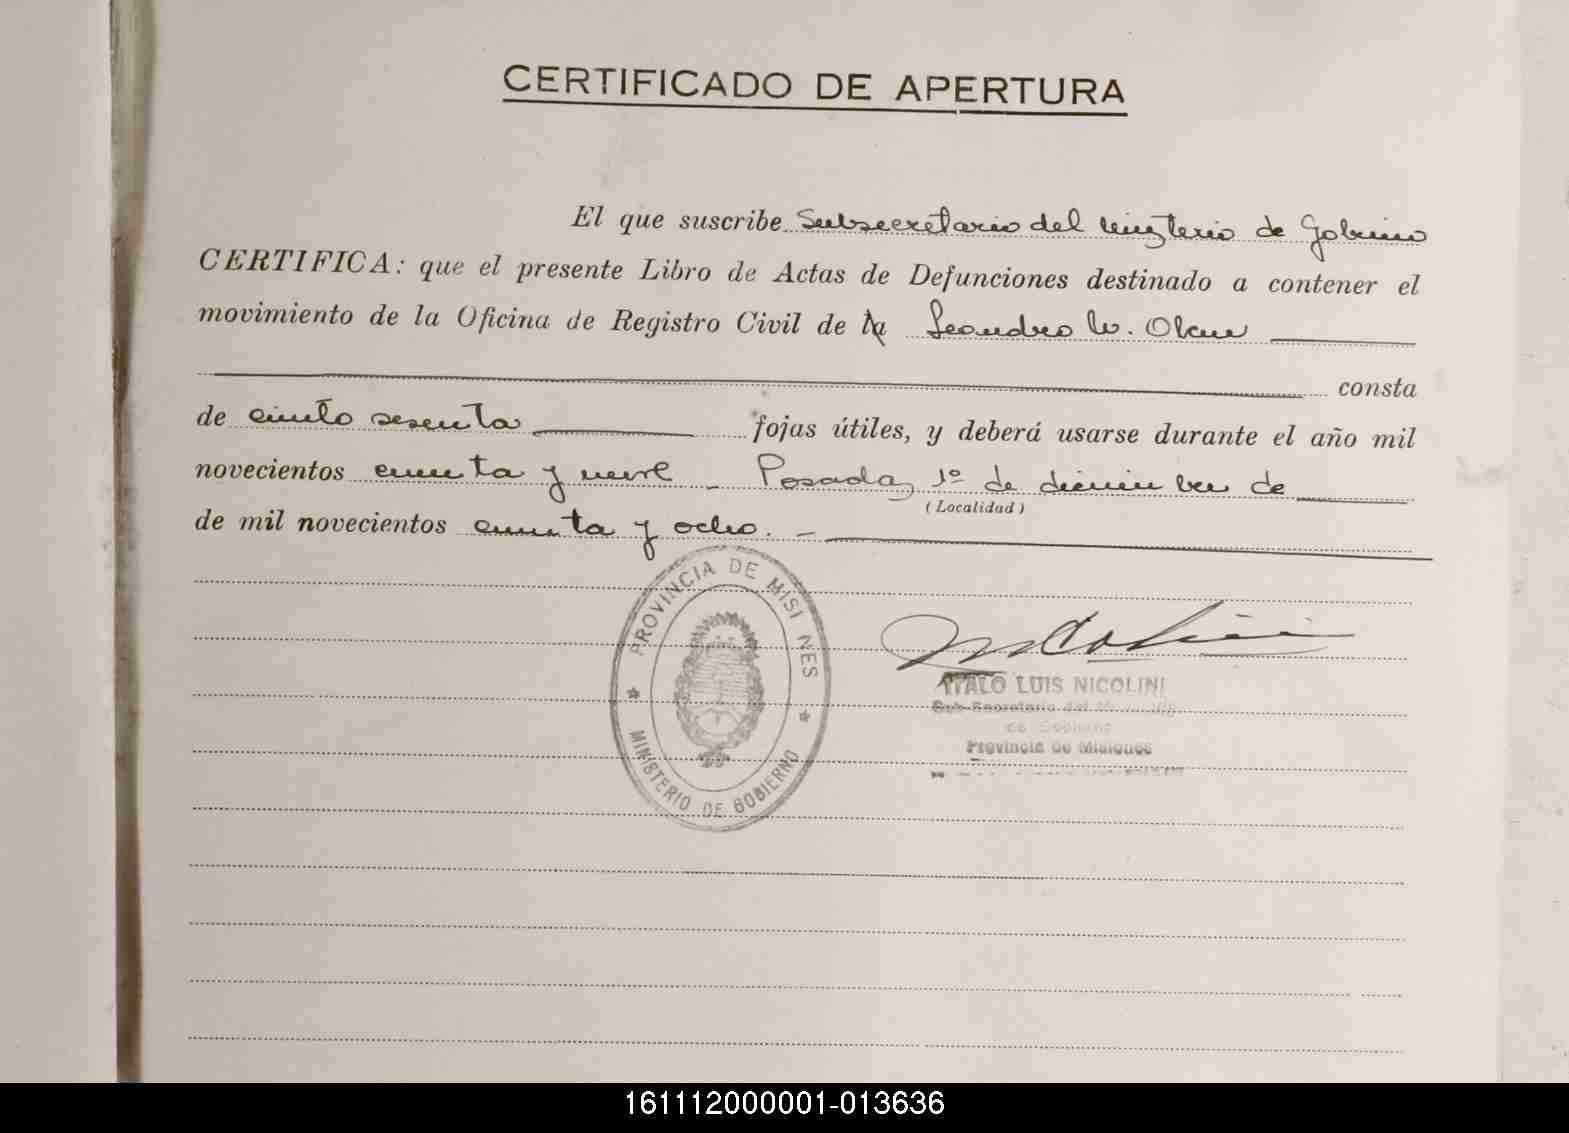 CERTIFICADO DE APERTURA
El que suscribe Subsecretario del Ministerio de Gobierno
CERTIFICA: que el presente Libro de Actas de Defunciones destinado a contener el
movimiento de la Oficina de Registro Civil de la Leandro N. Alem
consta
de ciento sesenta fojas útiles, y deberá usarse durante el año mil
novecientos cincuenta y nueve - Posadas, 1º de diciembre de
(Localidad)
de mil novecientos cincuenta y ocho. -
PROVINCIA DE MISIONES
MINISTERIO DE GOBIERNO
ITALO LUIS NICOLINI
Sub-Secretario del Ministerio
de Gobierno
Provincia de Misiones
161112000001-013636